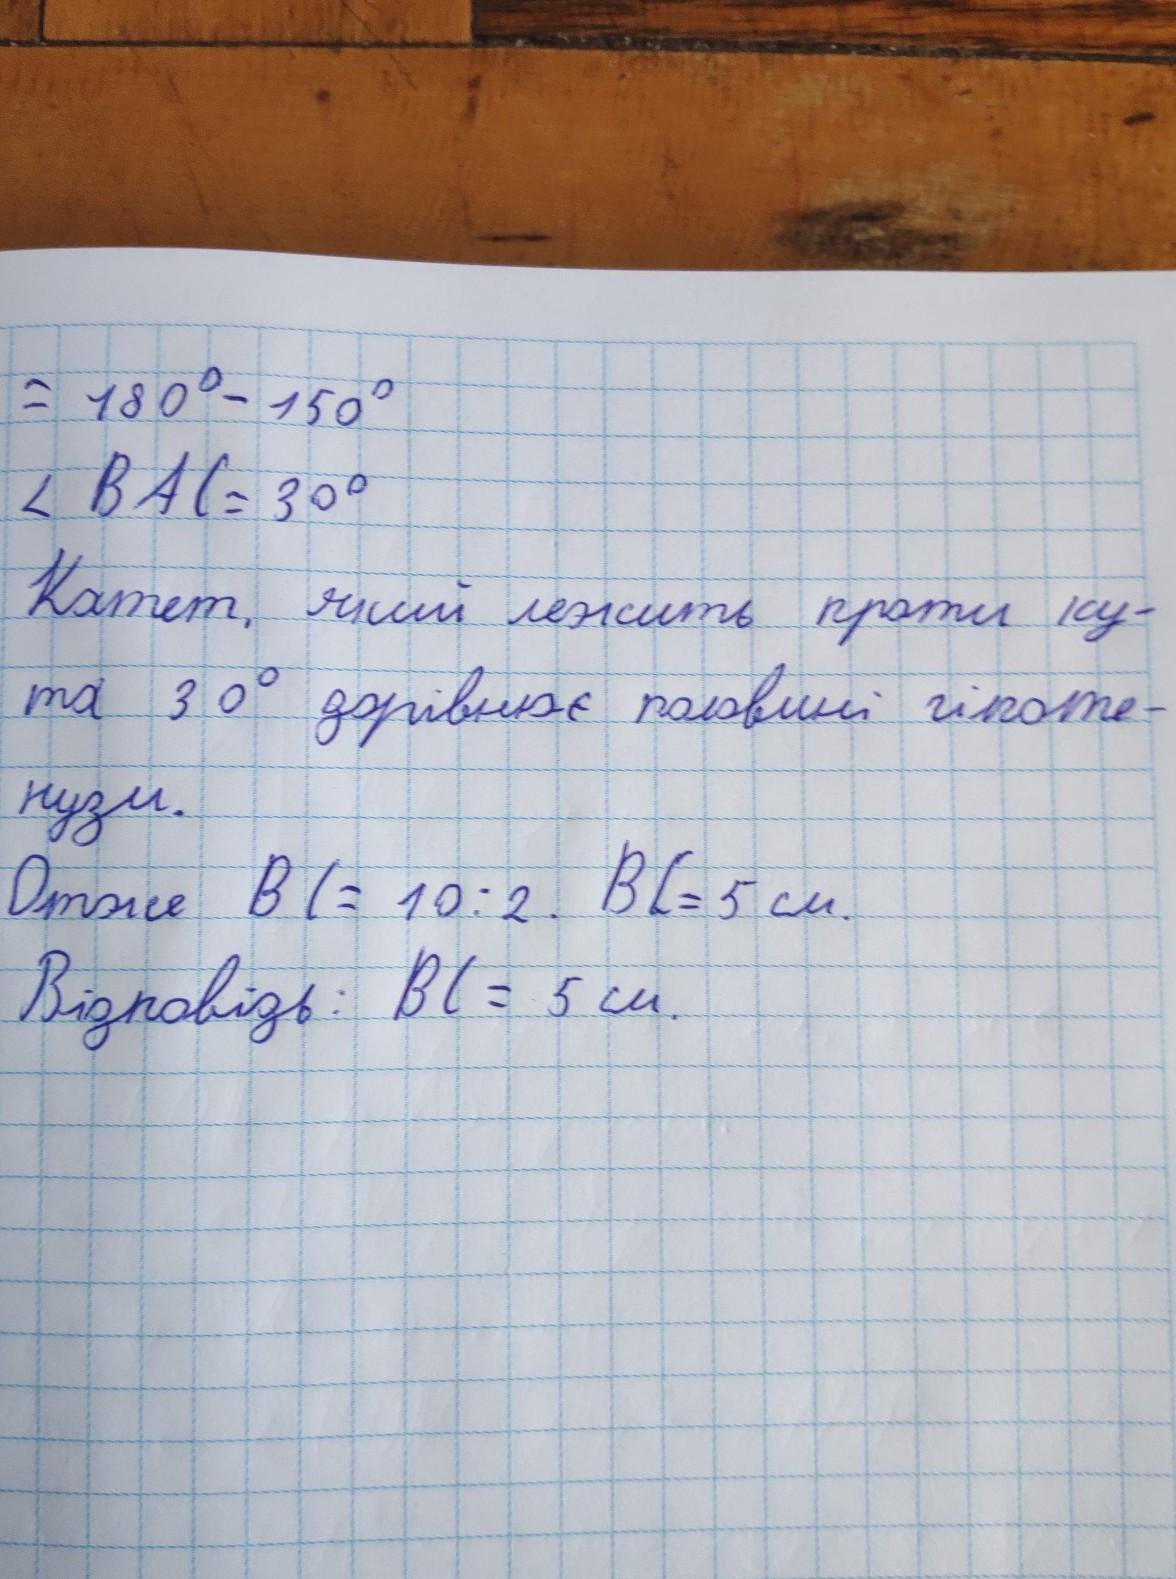 = 180° - 150°
∠ BAC = 30°
Катет, який лежить проти ку-
та 30° дорівнює половині гіпоте-
нузи.
Отже BC = 10 : 2. BC = 5 см.
Відповідь: BC = 5 см.